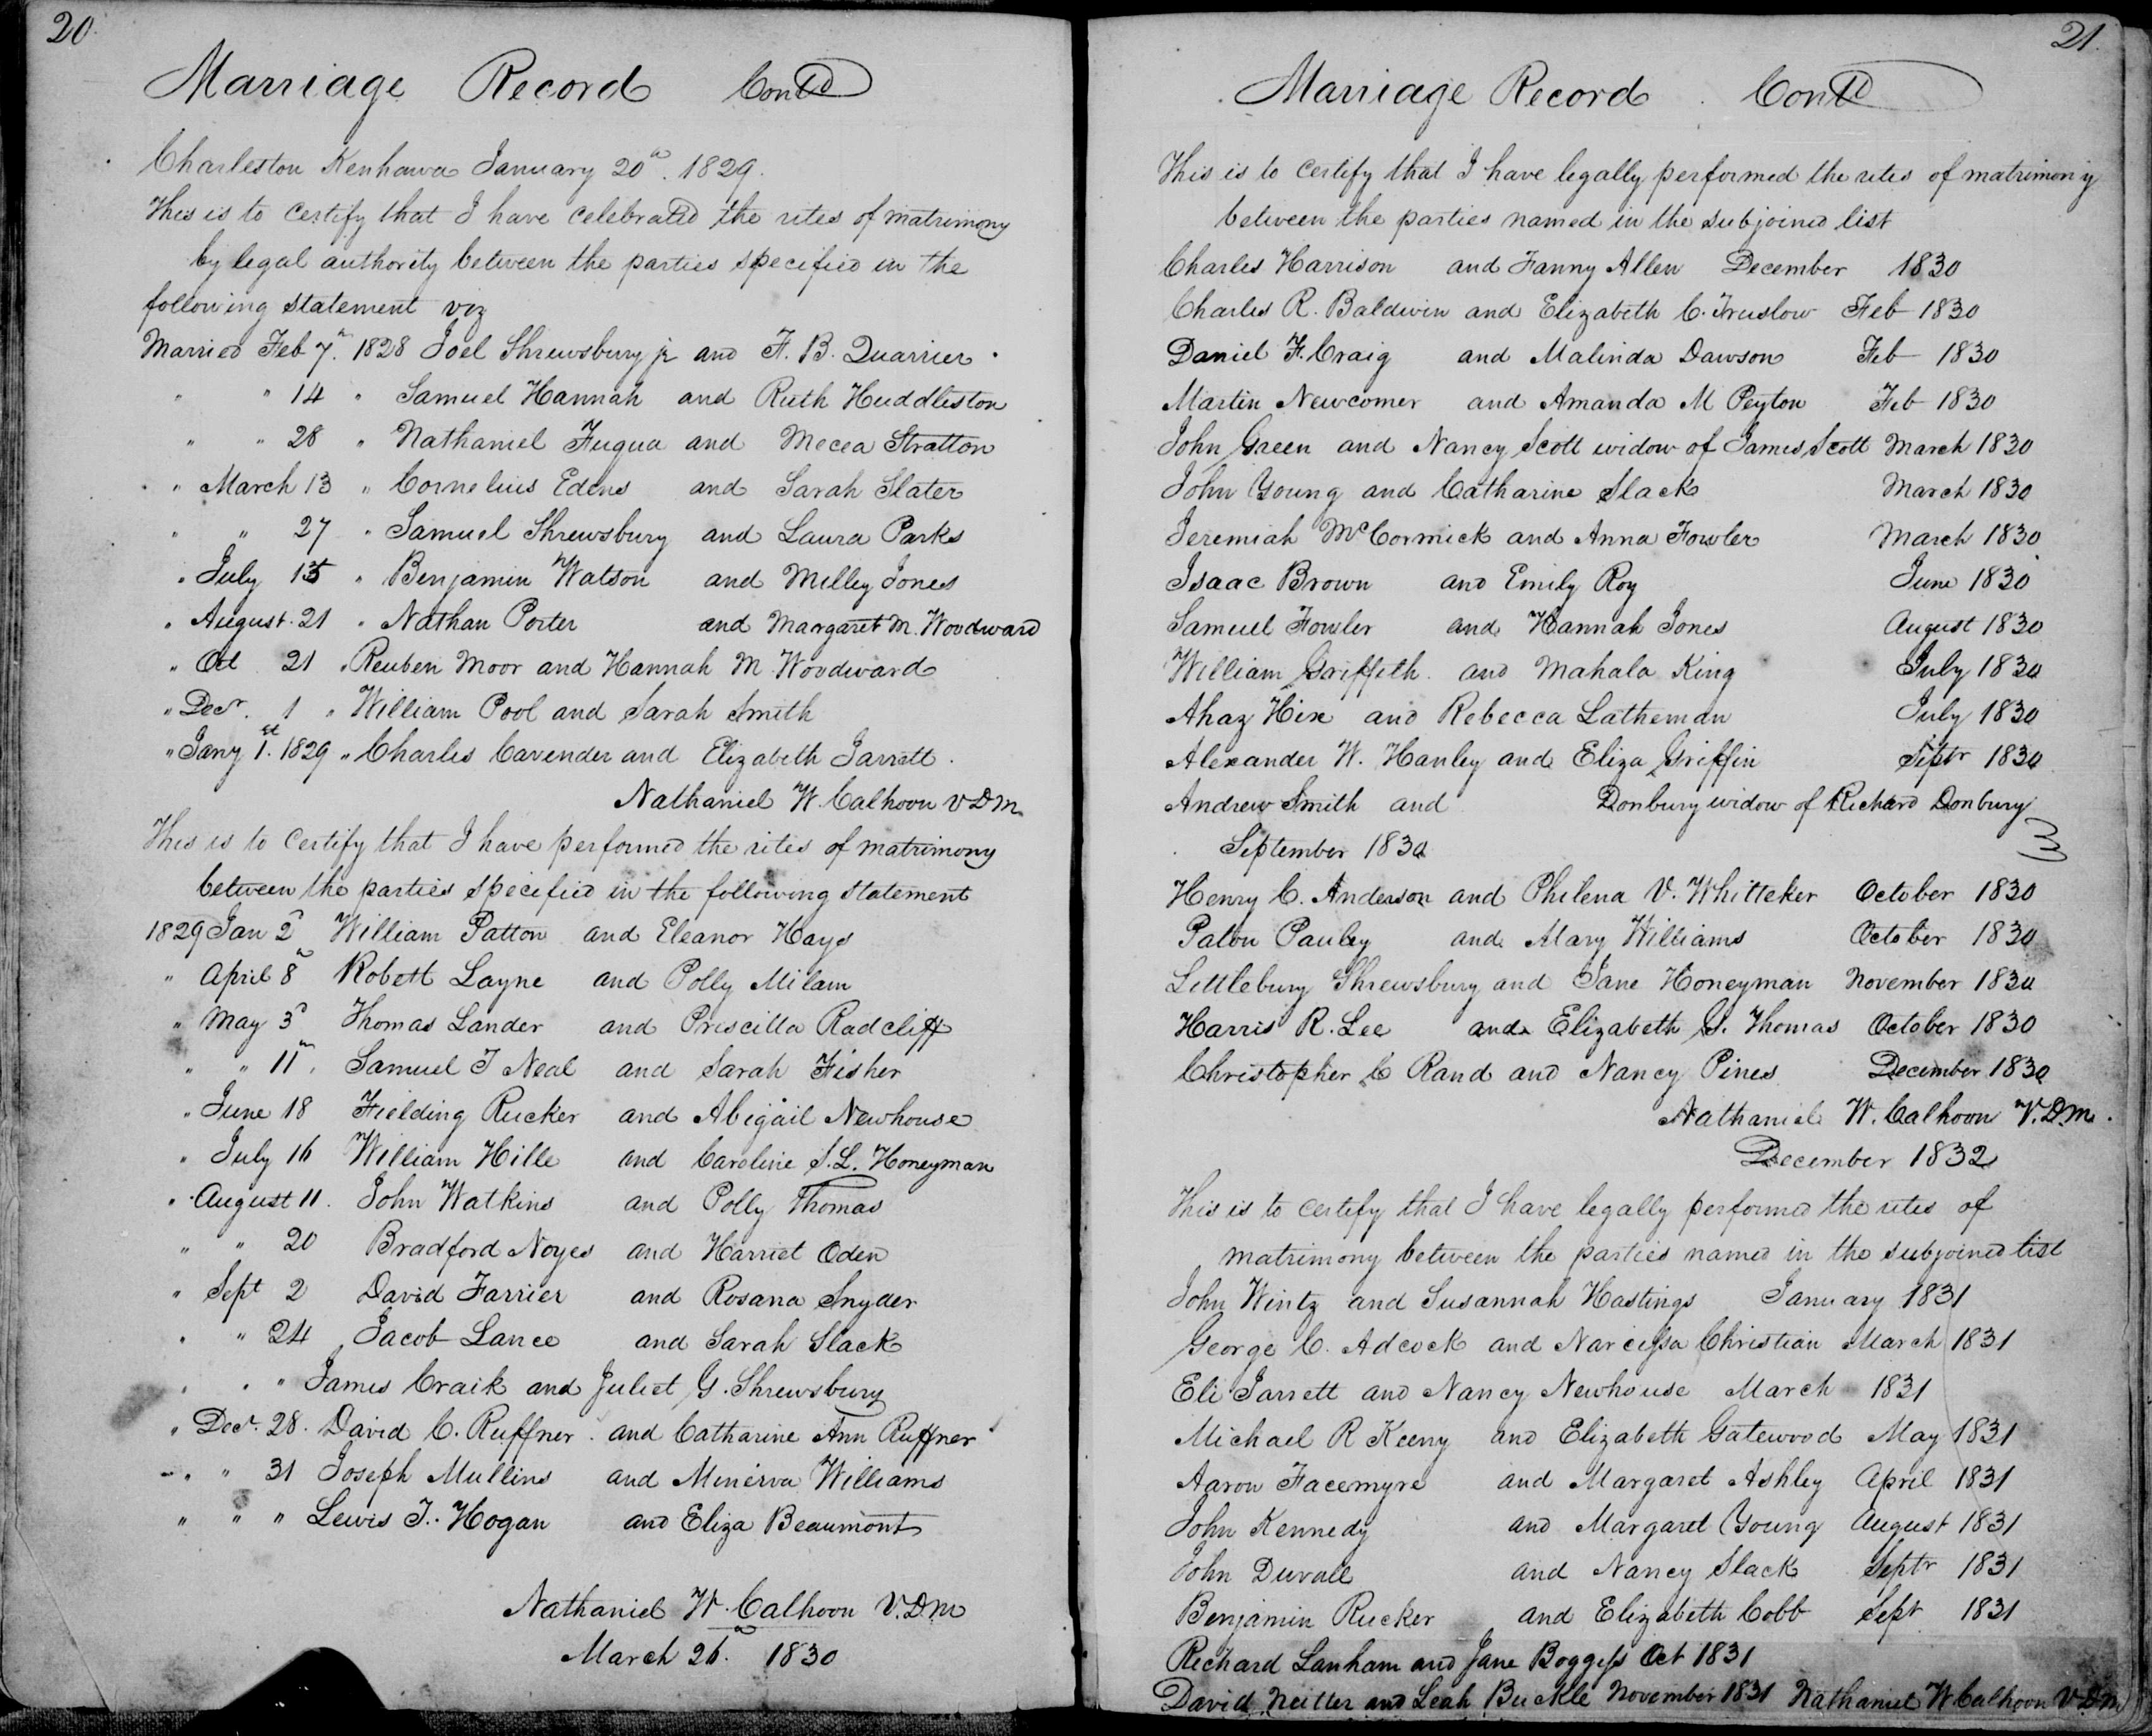 20.
Marriage Record Contd
Charleston Kenhawa January 20th. 1829.
This is to certify that I have celebrated the rites of matrimony
by legal authority between the parties specified in the
following statement viz
Married Feb 7th. 1828 Joel Shrewsbury jr and F. B. Quarrier.
" " 14 " Samuel Hannah and Ruth Huddleston
" " 28 " Nathaniel Fuqua and Mecea Stratton
" March 13 " Cornelius Edens and Sarah Slater
" " 27 " Samuel Shrewsbury and Laura Parks
" July 15 " Benjamin Watson and Milley Jones
" August 21 " Nathan Porter and Margaret M. Woodward
" Oct 21 " Reuben Moor and Hannah M. Woodward
" Decr. 1 " William Pool and Sarah Smith
" Jany 1st. 1829 " Charles Cavender and Elizabeth Jarrett.
Nathaniel W. Calhoon V D M
This is to certify that I have performed the rites of matrimony
between the parties specified in the following statement
1829 Jan 2d William Patton and Eleanor Hays
" April 8th Robett Layne and Polly Milam
" May 3d Thomas Lander and Priscilla Radcliff
" " 11th. Samuel T Neal and Sarah Fisher
" June 18 Fielding Rucker and Abigail Newhouse
" July 16 William Hille and Caroline S. L. Honeyman
" August 11. John Watkins and Polly Thomas
" " 20 Bradford Noyes and Harriet Oden
" Sept 2 David Farrier and Rosana Snyder
" " 24 Jacob Lance and Sarah Slack
" " " James Craik and Juliet G. Shrewsbury
" Decr. 28. David C. Ruffner and Catharine Ann Ruffner
" " 31 Joseph Mullins and Minerva Williams
" " " Lewis T. Hogan and Eliza Beaumont
Nathaniel W. Calhoon V.D.M
March 26th. 1830
21.
Marriage Record Contd
This is to certify that I have legally performed the rites of matrimony
between the parties named in the subjoined list
Charles Harrison and Fanny Allen December 1830
Charles R. Baldwin and Elizabeth C. Truslow Feb 1830
Daniel F. Craig and Malinda Dawson Feb 1830
Martin Newcomer and Amanda M Peyton Feb 1830
John Green and Nancy Scott widow of James Scott March 1830
John Young and Catharine Slack March 1830
Jeremiah McCormick and Anna Fowler March 1830
Isaac Brown and Emily Roy June 1830
Samuel Fowler and Hannah Jones August 1830
William Griffith and Mahala King July 1830
Ahaz Hix and Rebecca Latheman July 1830
Alexander W. Hanley and Eliza Griffin Septr 1830
Andrew Smith and Donbury widow of Richard Donbury
September 1830
Henry C. Anderson and Philena V. Whitteker October 1830
Paton Pauley and Mary Williams October 1830
Littlebury Shrewsbury and Jane Honeyman November 1830
Harris R. Lee and Elizabeth G. Thomas October 1830
Christopher C Rand and Nancy Pines December 1830
Nathaniel W. Calhoon V.D.M.
December 1832
This is to certify that I have legally performed the rites of
matrimony between the parties named in the subjoined list
John Wintz and Susannah Hastings January 1831
George C. Adcock and Narcissa Christian March 1831
Eli Jarrett and Nancy Newhouse March 1831
Michael R Keeny and Elizabeth Gatewood May 1831
Aaron Facemyre and Margaret Ashley April 1831
John Kennedy and Margaret Young August 1831
John Duvall and Nancy Slack Septr 1831
Benjamin Rucker and Elizabeth Cobb Sept 1831
Richard Lanham and Jane Boggess Oct 1831
David Neitter and Leah Buckle November 1831 Nathaniel W Calhoon V.D.M